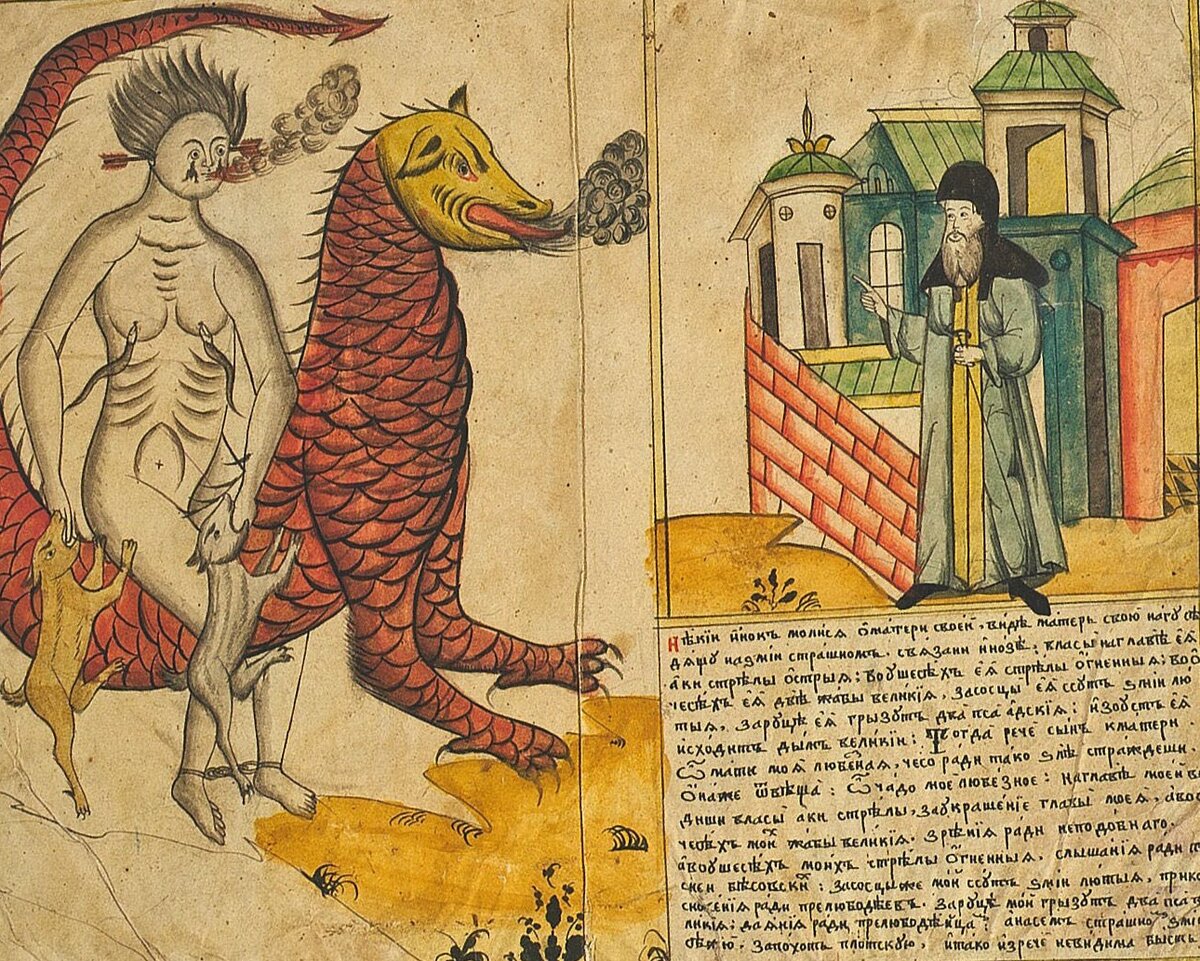 Нѣкїи инокъ молися ѡматери своеи, видѣ матерь свою нагу сѣ
дящу назмїи страшномъ, связани инозѣ: власы наглавѣ ея
аки стрѣлы острыя; воушесѣхъ ея стрѣлы ѻгненныя; воѻ
чесѣхъ ея двѣ жабы великїя, засосцы ея ссутъ змїи лю
тыя, заруцѣ ея грызутъ два пса адскїя: изоустъ ея
исходитъ дымъ великїи: Тогда рече сынъ кматери
Ѽ мати моя любезная, чесо ради тако злѣ страждеши.
Ѻнаже ѿвѣща: Ѽ чадо мое любезное: наглавѣ моеи ви
диши власы аки стрѣлы, заукрашенїе главы моея, авоѻ
чесѣхъ мои жабы великїя, зрѣнїя ради неподобнаго.
авоушесѣхъ моихъ стрѣлы ѻгненныя, слышанїя ради п
снеи бѣсовски: засосцыже мои ссутъ змїи лютыя, прико
сновенїя ради прелюбодѣевъ. заруцѣ мои грызутъ два пса
ликїя: даянїя ради прелюбодѣица: анасемъ страшно змїи
сѣжю. запохоть плотскую, итако изрече невидима бысть